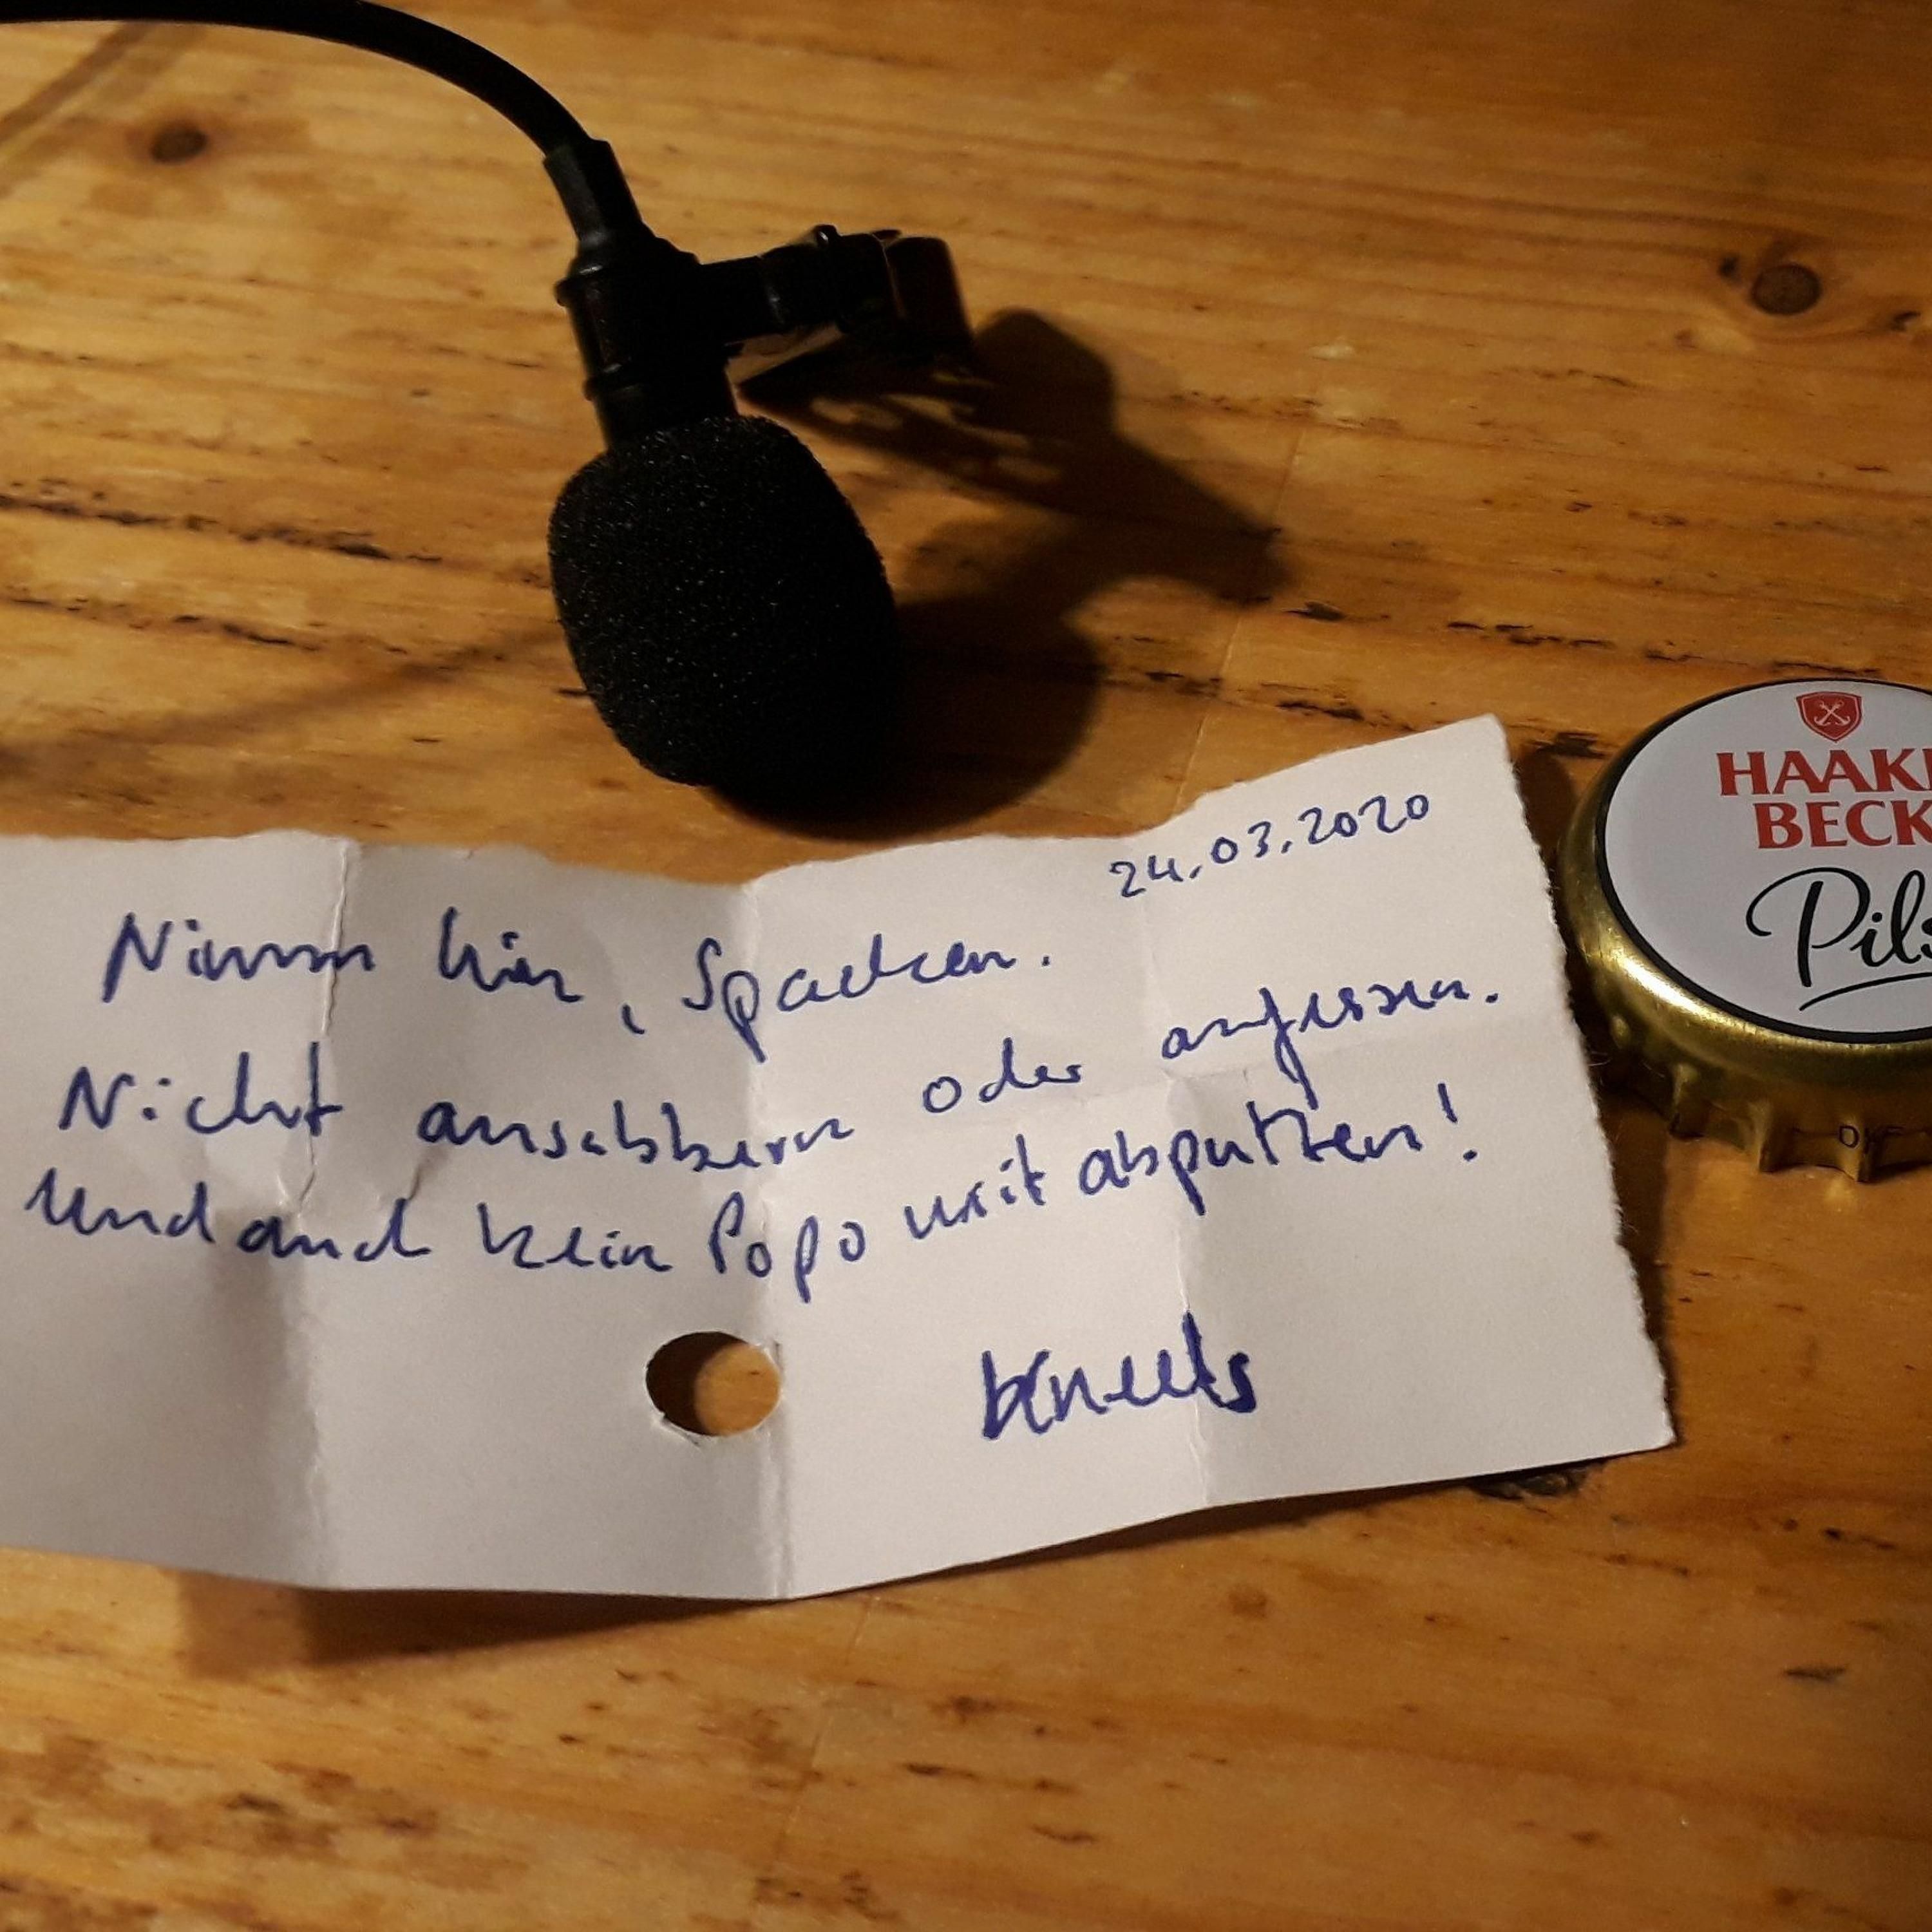 24.03.2020
Nimm hier, Spacken.
Nicht ansabbern oder anfressen.
Und auch kein Popo mit abputzen!
HAAKE
BECK
Pils